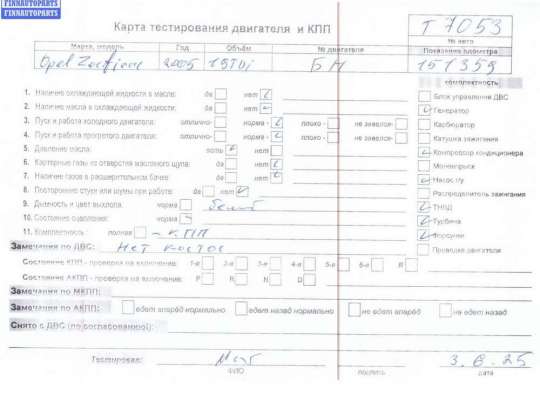 FINNAUTOPARTS
Карта тестирования двигателя и КПП
Т 7053
№ авто
Марка, модель Год Объём № двигателя Показания одометра
Opel Zafira 2005 1.9TDi БН 151359
комплектность
1. Наличие охлаждающей жидкости в масле: да нет
2. Наличие масла в охлаждающей жидкости: да нет
3. Пуск и работа холодного двигателя: отлично- норма - плохо - не завелся-
4. Пуск и работа прогретого двигателя: отлично- норма - плохо - не завелся-
5. Давление масла: есть нет
6. Картерные газы из отверстия масляного щупа: да нет
7. Наличие газов в расширительном бачке: да нет
8. Посторонние стуки или шумы при работе: да нет
9. Дымность и цвет выхлопа: норма белый
10. Состояние оцепления: норма
11. Комплектность : полная - КПП
Блок управления ДВС
Генератор
Карбюратор
Катушка зажигания
Компрессор кондиционера
Моновпрыск
Насос г/у
Распределитель зажигания
ТНВД
Турбина
Форсунки
Проводка двигателя
Замечания по ДВС: Нет косос
Состояние КПП - проверка на включение: 1-я 2-я 3-я 4-я 5-я 6-я R
Состояние АКПП - проверка на включение: P R N D
Замечания по МКПП:
Замечания по АКПП: едет вперёд нормально едет назад нормально не едет вперёд не едет назад
Снято с ДВС (по согласованию):
Тестировал: 3.6.25
ФИО подпись дата